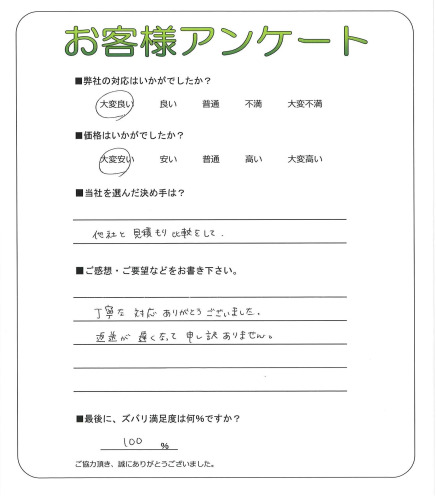 お客様アンケート
■弊社の対応はいかがでしたか？
大変良い 良い 普通 不満 大変不満
■価格はいかがでしたか？
大変安い 安い 普通 高い 大変高い
■当社を選んだ決め手は？
他社と見積もり比較をして.
■ご感想・ご要望などをお書き下さい。
丁寧な対応ありがとうございました.
返送が遅くなって申し訳ありません。
■最後に、ズバリ満足度は何%ですか？
100 %
ご協力頂き、誠にありがとうございました。